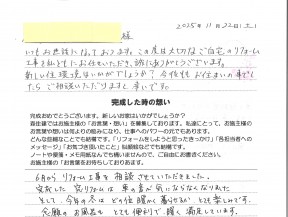 2025年11月22日(土)
様
いつもお世話になっております。この度は大切なご自宅のリフォーム
工事を私どもにお任せいただき、誠にありがとうございます。
新しい住環境はいかがでしょうか？今後もお住まいの事でし
たらご相談いただけますと幸いです。
完成した時の想い
完成おめでとうございます。新しいお家はいかがでしょうか？
弊住建ではお施主様の「お言葉・想い」を募集しております。私達にとって、お施主
様の想いは何よりの励みになり、仕事へのパワーの元でもあります。
どんな些細なことでも結構です。「リフォームをしようと思ったきっかけ」「各担当者への
メッセージ」「お気づき頂いたこと」「似顔絵などでも結構です。
ノートや便箋・メモ用紙なんでも構いませんので、ご自由にお書きください。
お施主様の想いをお待ちしております。
6月からリフォーム工事を相談させていただきました。
完成した 窓リフォームは 車の音が気にならなくなりました
そして、今年の冬はどの位暖かく暮らせるか とても楽しみです。
念願のお風呂も とても便利で、暖く 満足しています。